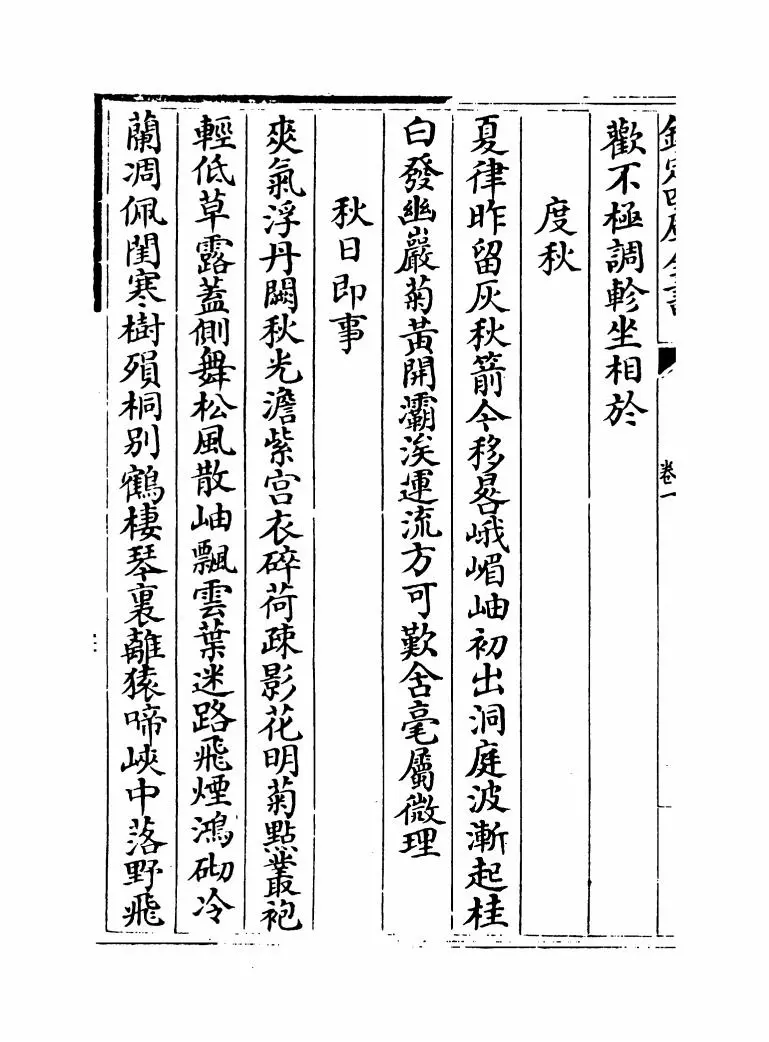 欽定四庫全書
卷一
歡不極調軫坐相於
度秋
夏律昨留灰秋箭今移晷峨嵋岫初出洞庭波漸起桂
白發幽巖菊黃開灞涘運流方可歎含毫屬微理
秋日即事
爽氣浮丹闕秋光澹紫宫衣碎荷疎影花明菊點叢袍
輕低草露蓋側舞松風散岫飄雲葉迷路飛煙鴻砌冷
蘭凋佩閨寒樹殞桐别鶴棲琴裏離猿啼峽中落野飛